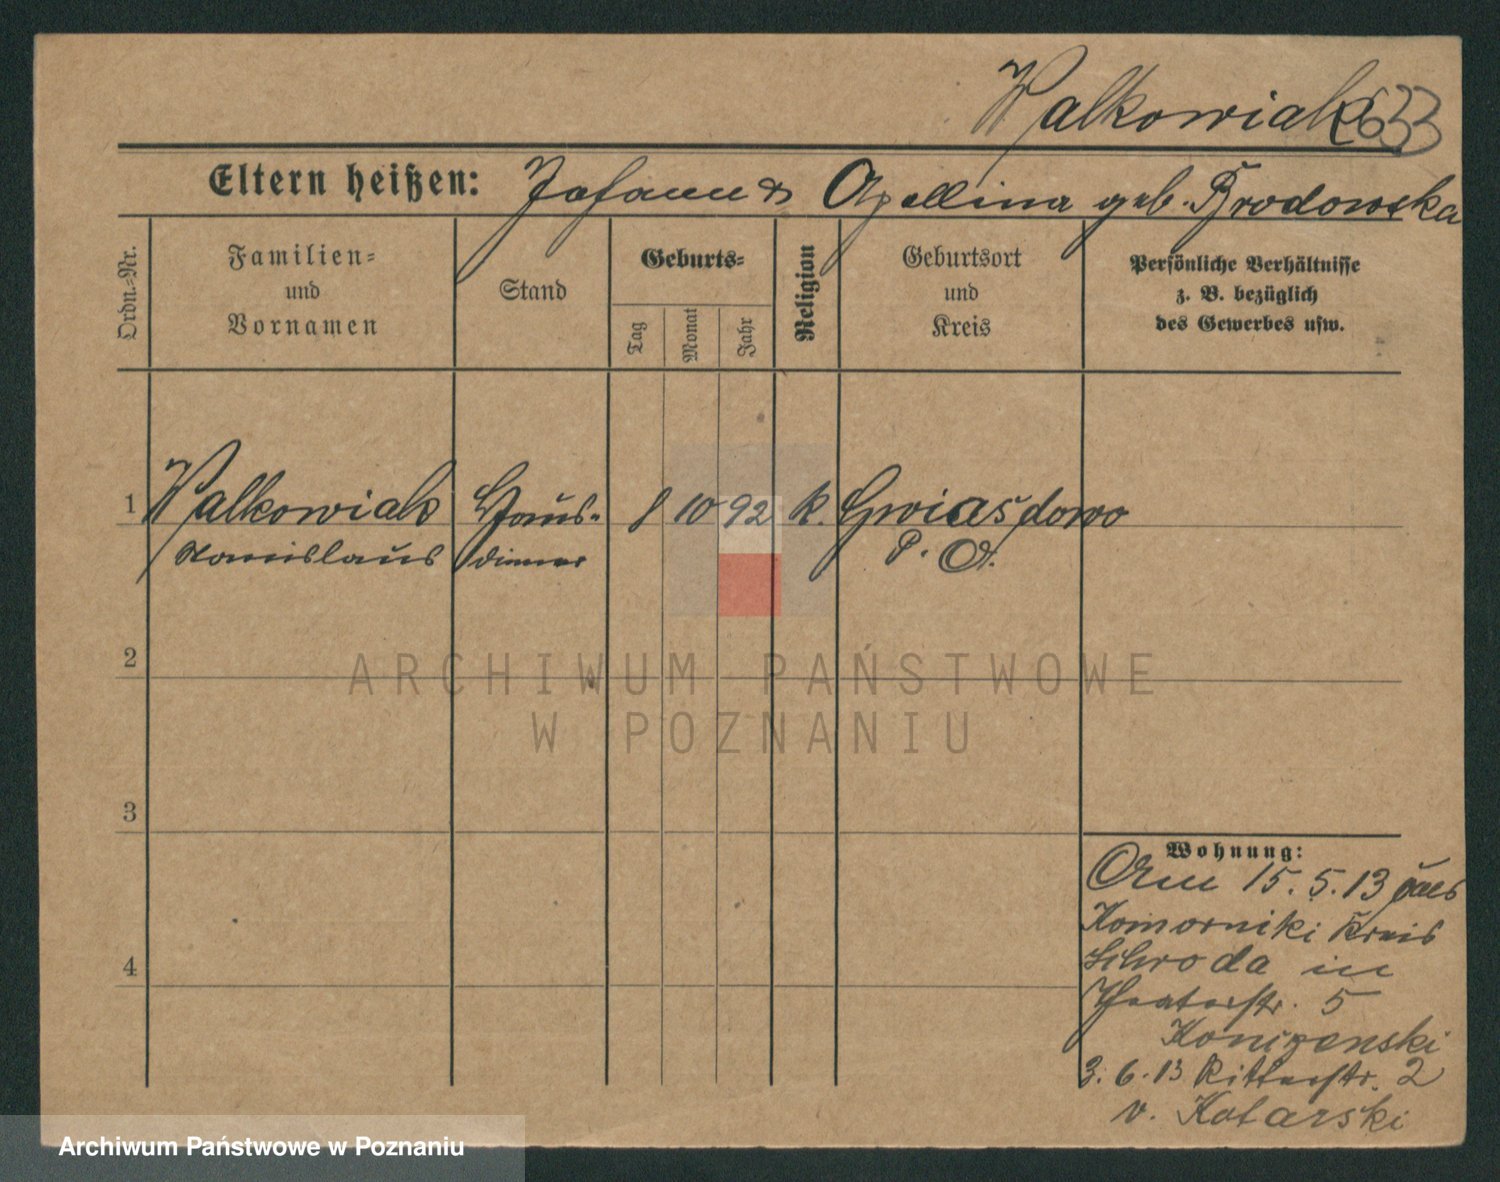 Walkowiak 633
Eltern heißen: Johann & Apollina geb. Brodowska
Ordn.-Nr.
Familien-
und
Vornamen
Stand
Geburts-
Tag
Monat
Jahr
Religion
Geburtsort
und
Kreis
Persönliche Verhältnisse
z. B. bezüglich
des Gewerbes usw.
1 Walkowiak Haus- 8 10 92 k. Gwiasdowo
Stanislaus diener P. O.
2
3
4
Wohnung:
Am 15.5.13 aus
Komorniki Kreis
Schroda in
Theaterstr. 5
3.6.13 Ritterstr. 2
v. Kotarski
ARCHIWUM PAŃSTWOWE
W POZNANIU
Archiwum Państwowe w Poznaniu